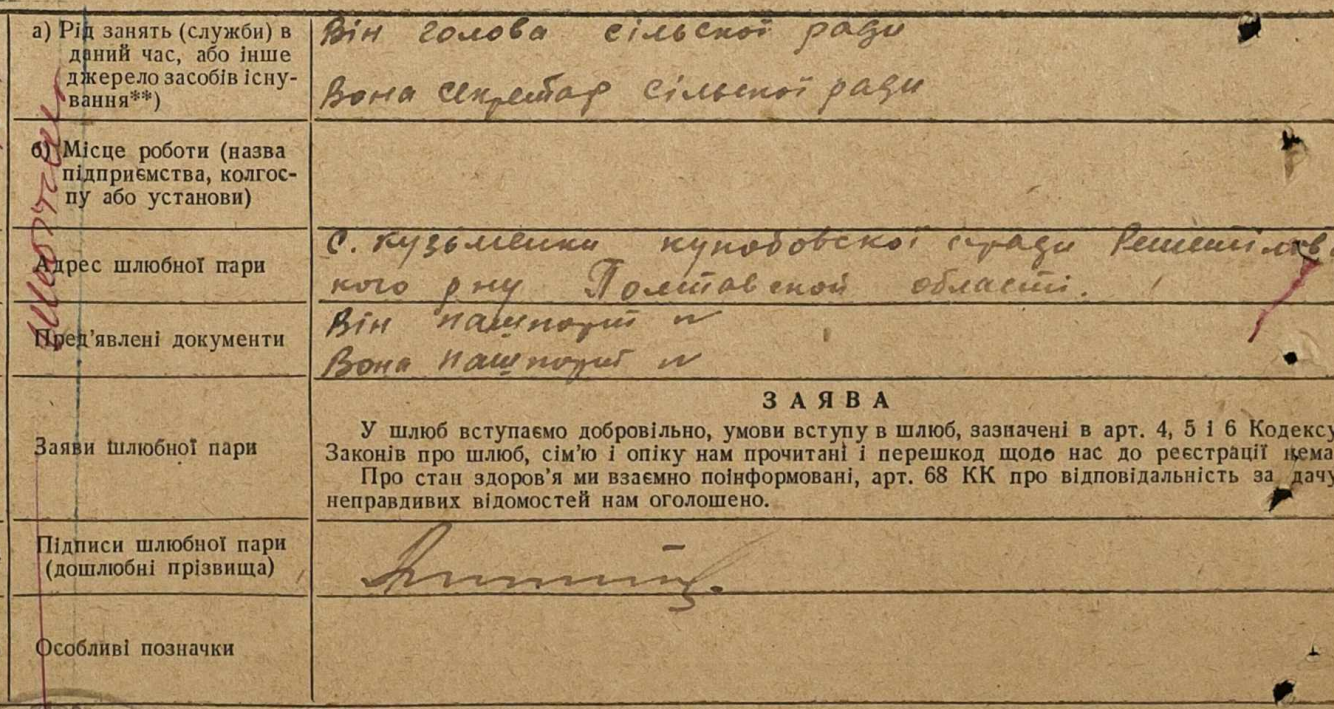 а) Рід занять (служби) в
даний час, або інше
джерело засобів існу-
вання**)
Він голова сільскої ради
Вона секретар сільскої ради
б) Місце роботи (назва
підприємства, колгос-
пу або установи)
Адрес шлюбної пари
с. Кузьменки сради Решетілавс
кого р ну Полтавской області.
Пред'явлені документи
Він пашпорт №
Вона пашпорт №
Заяви шлюбної пари
ЗАЯВА
У шлюб вступаємо добровільно, умови вступу в шлюб, зазначені в арт. 4, 5 і 6 Кодексу
Законів про шлюб, сім'ю і опіку нам прочитані і перешкод щодо нас до реєстрації нема
Про стан здоров'я ми взаємно поінформовані, арт. 68 КК про відповідальність за дачу
неправдивих відомостей нам оголошено.
Підписи шлюбної пари
(дошлюбні прізвища)
Особливі позначки